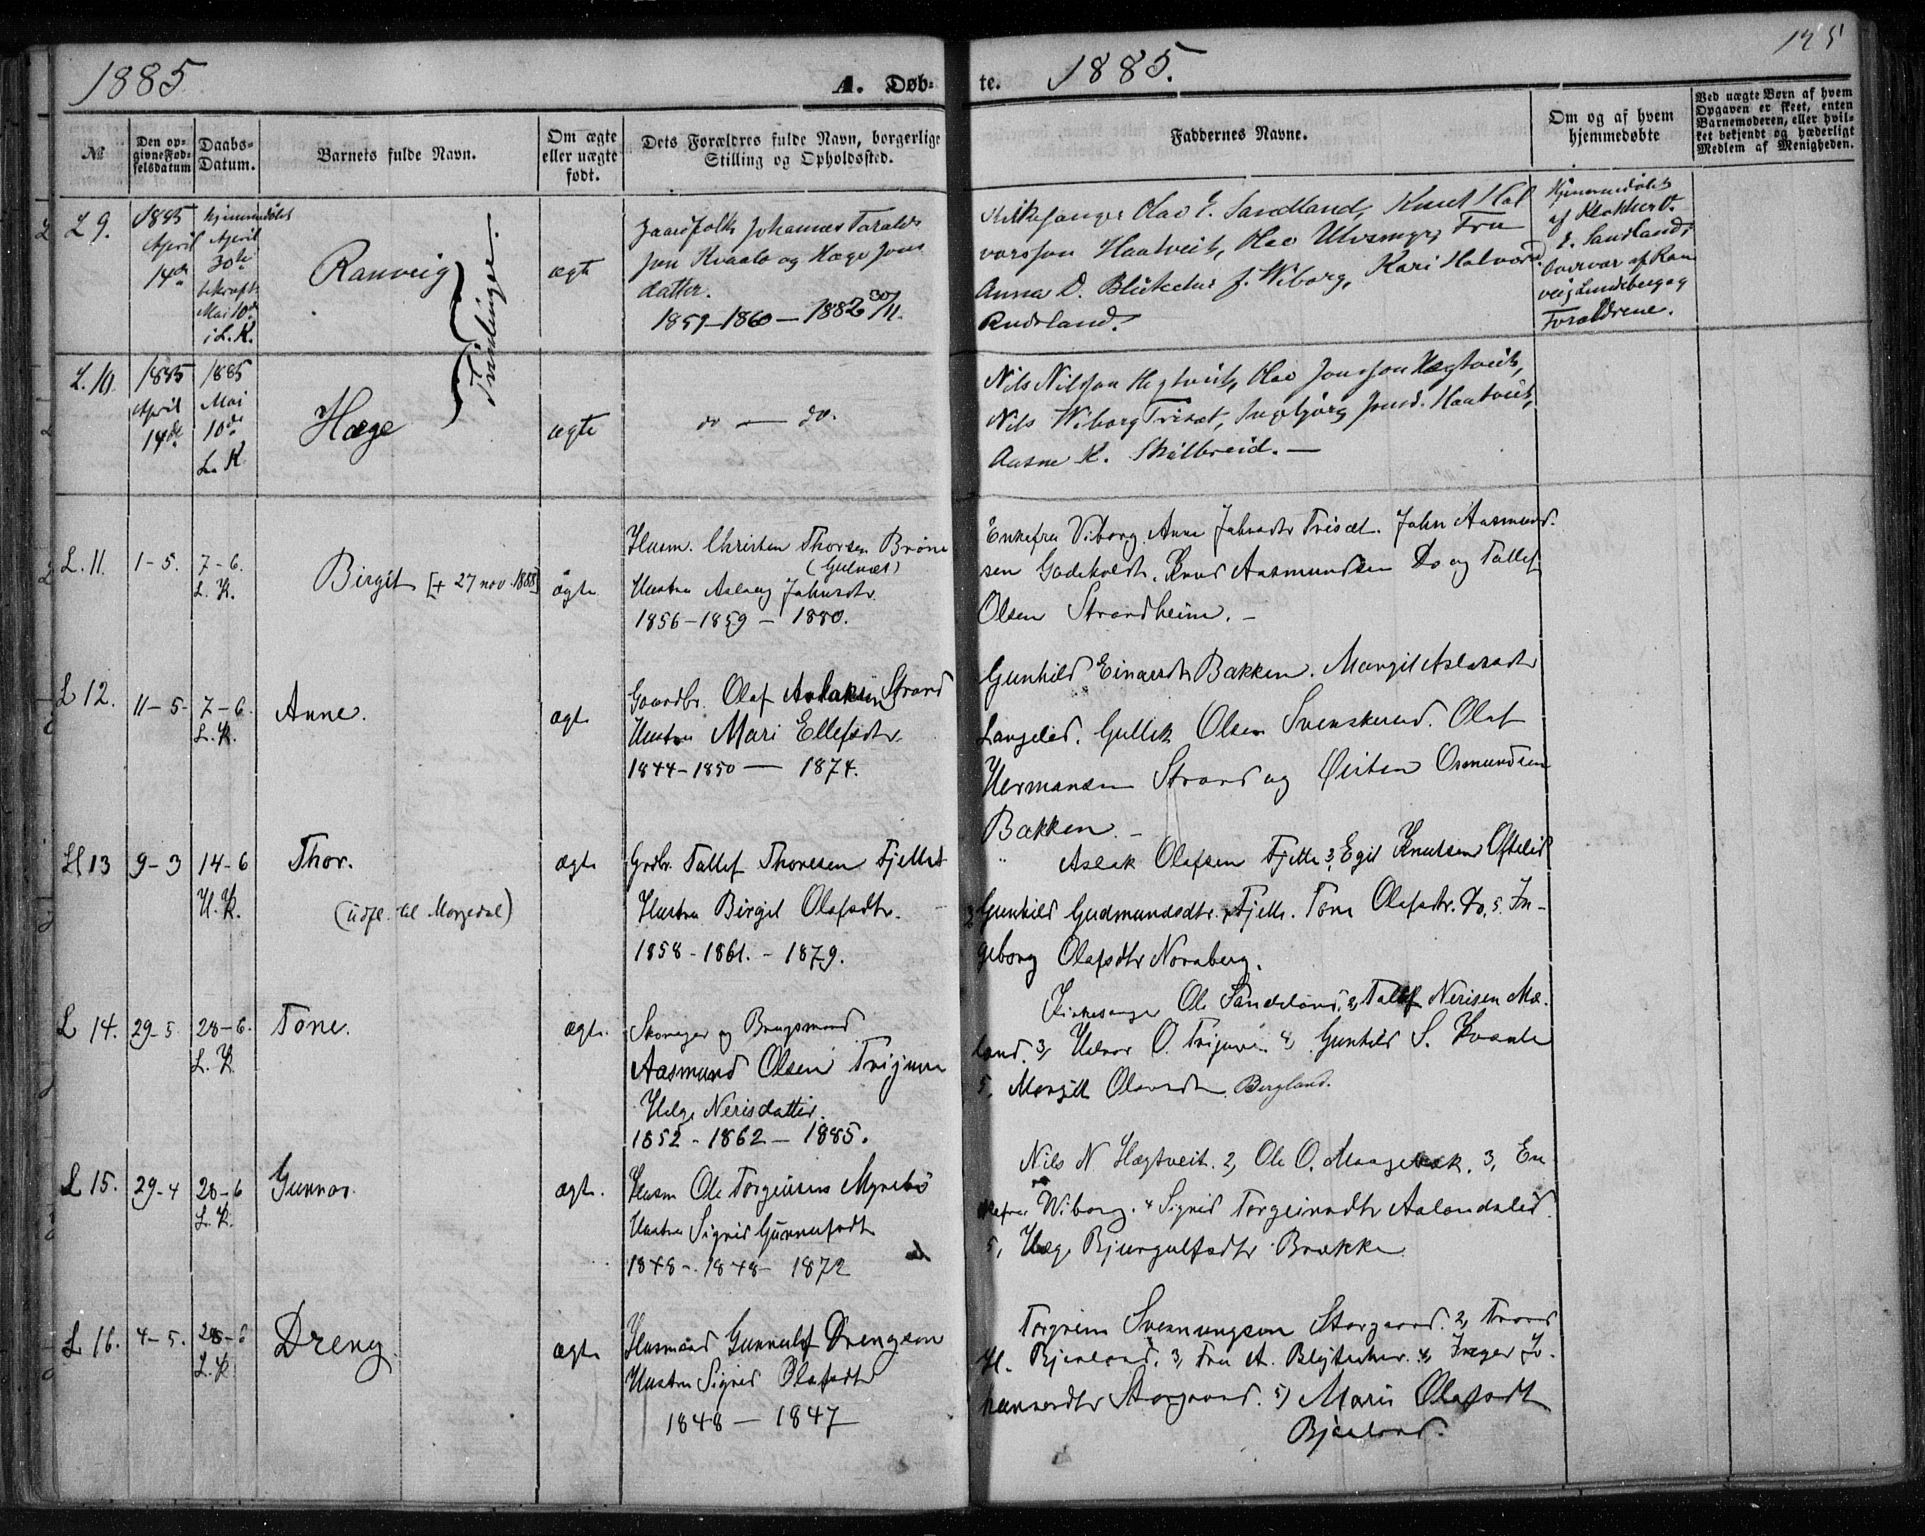 1885
A. Døb-
te.
1885.
125
№
Den op-
givne Fød-
selsdatum
Daabs-
Datum.
Barnets fulde Navn.
Om ægte
eller uægte
født.
Dets Forældres fulde Navn, borgerlige
Stilling og Opholdssted.
Faddernes Navne.
Om og af hvem
hjemmedøbte
Ved uægte Børn af hvem
Opgaven er skeet, enten
Barnemoderen, eller hvil-
ket bekjendt og hæderligt
Medlem af Menigheden.
L 9.
1885
April
14de
hjemmedøbt
April
30te
bekræft.
Mai 10de
i L. K.
Ranveig
Tvillinger.
ægte
Gaardfolk Johannes Taralds
søn Kvaale og Hæge Jons
datter.
1859–1860 – 1882 30/11.
Kirkesanger Olav E. Sandland, Knut Hal
vorsson Haatveit, Olav Ulvsmyr, Fru
Anna D. f. Wiborg, Kari Halvord.
Rudsland.
Hjemmedøbt
af Klokker O.
E. Sandland,
overvær af Ran
veig Lundeberg og
Forældrene.
L. 10.
1885
April
14de
1885
Mai
10de
L. K.
Hæge
ægte
do — do.
Nils Nilsson Hegtveit, Olav Jonsson Hægtveit,
Nils Wiborg Trisæt, Ingebjørg Jonsd. Haatveit,
Aasne K. Skilbreid. —
L. 11.
1-5.
7-6.
L. K.
Birgit [+ 27 nov. 1888]
ægte
Husm. Christen Thorsen Brone
(Gulnæs)
Hustru Aslaug Johnsdtr.
1856–1859 – 1880.
Enkefru Viborg. Anne Johnsdtr Trisæt. John Aasmund-
sen Godskoldt. Knud Aasmundsen Do og Tallef
Olsen Strandheim. –
L 12.
11-5.
7-6.
L. K.
Anne.
ægte
Gaardbr. Olaf Aslaksen Strand
Hustru Mari Ellefsdtr.
1844–1850 — 1874.
Gunhild Einarsdtr Bakken. Margit Aslaksdtr
Langelid. Gullik Olsen Svenskerud. Olaf
Hermansen Strand og Østen Osmundsen
Bakken. –
H 13
9-3
14-6
H. K.
Thor.
(udfl. til Morgedal)
ægte
Grdbr. Tallef Thoresen Fjelle
Hustru Birgit Olafsdtr.
1858 - 1861. - 1879.
Aslak Olafsen Fjelle 2, Egil Knutsen Oftelid
3, Gunhild Gudmundsdtr. Fjelle. Tone Olafsdtr. Do. 5. In-
geborg Olafsdtr Noraberg.
L 14.
29-5
28-6.
L. K.
Tone.
ægte.
Skomager og Brugsmand
Aasmund Olsen Trijuve
Helge Nerisdatter.
1852 - 1862 - 1885.
Kirkesanger Ole Sandeland. 2, Tallef Nerisen Mæ-
land. 3, Halvor O. Trijuve 4, Gunhild S. Kvaale
5, Margit Olavsdtr. Bergland.
L 15.
29-4
28-6
L. K.
Gunnar.
ægte.
Husm Ole Torgeirsen Myrebø
Hustru Sigrid Gunnufsdtr
1848 - 1848 - 1872
Nils N. Hægtveit. 2, Ole O. Maagebæk. 3, En-
kefru Wiborg. 4 Sigrid Torgeirsdtr Aslandslid.
5, Hæge Bjurgulfsdtr Brække
L 16.
4-5.
28-6
L. K.
Dreng.
ægte
Husmand Gunnulf Drengson
Hustru Sigrid Olafsdtr
1848 — 1847
Torgrim Svenungson Storgaard. 2, Trond
H. Bjaaland. 3, Fru A. 4, Inger Jo-
hannesdtr Storgaard. 5) Mari Olafsdt
Bjaaland.